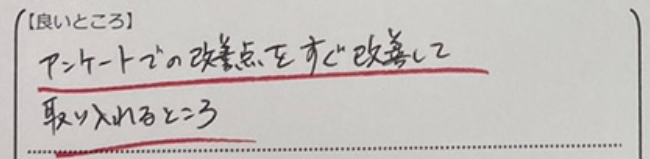 【良いところ】
アンケートでの改善点をすぐ改善して
取り入れるところ